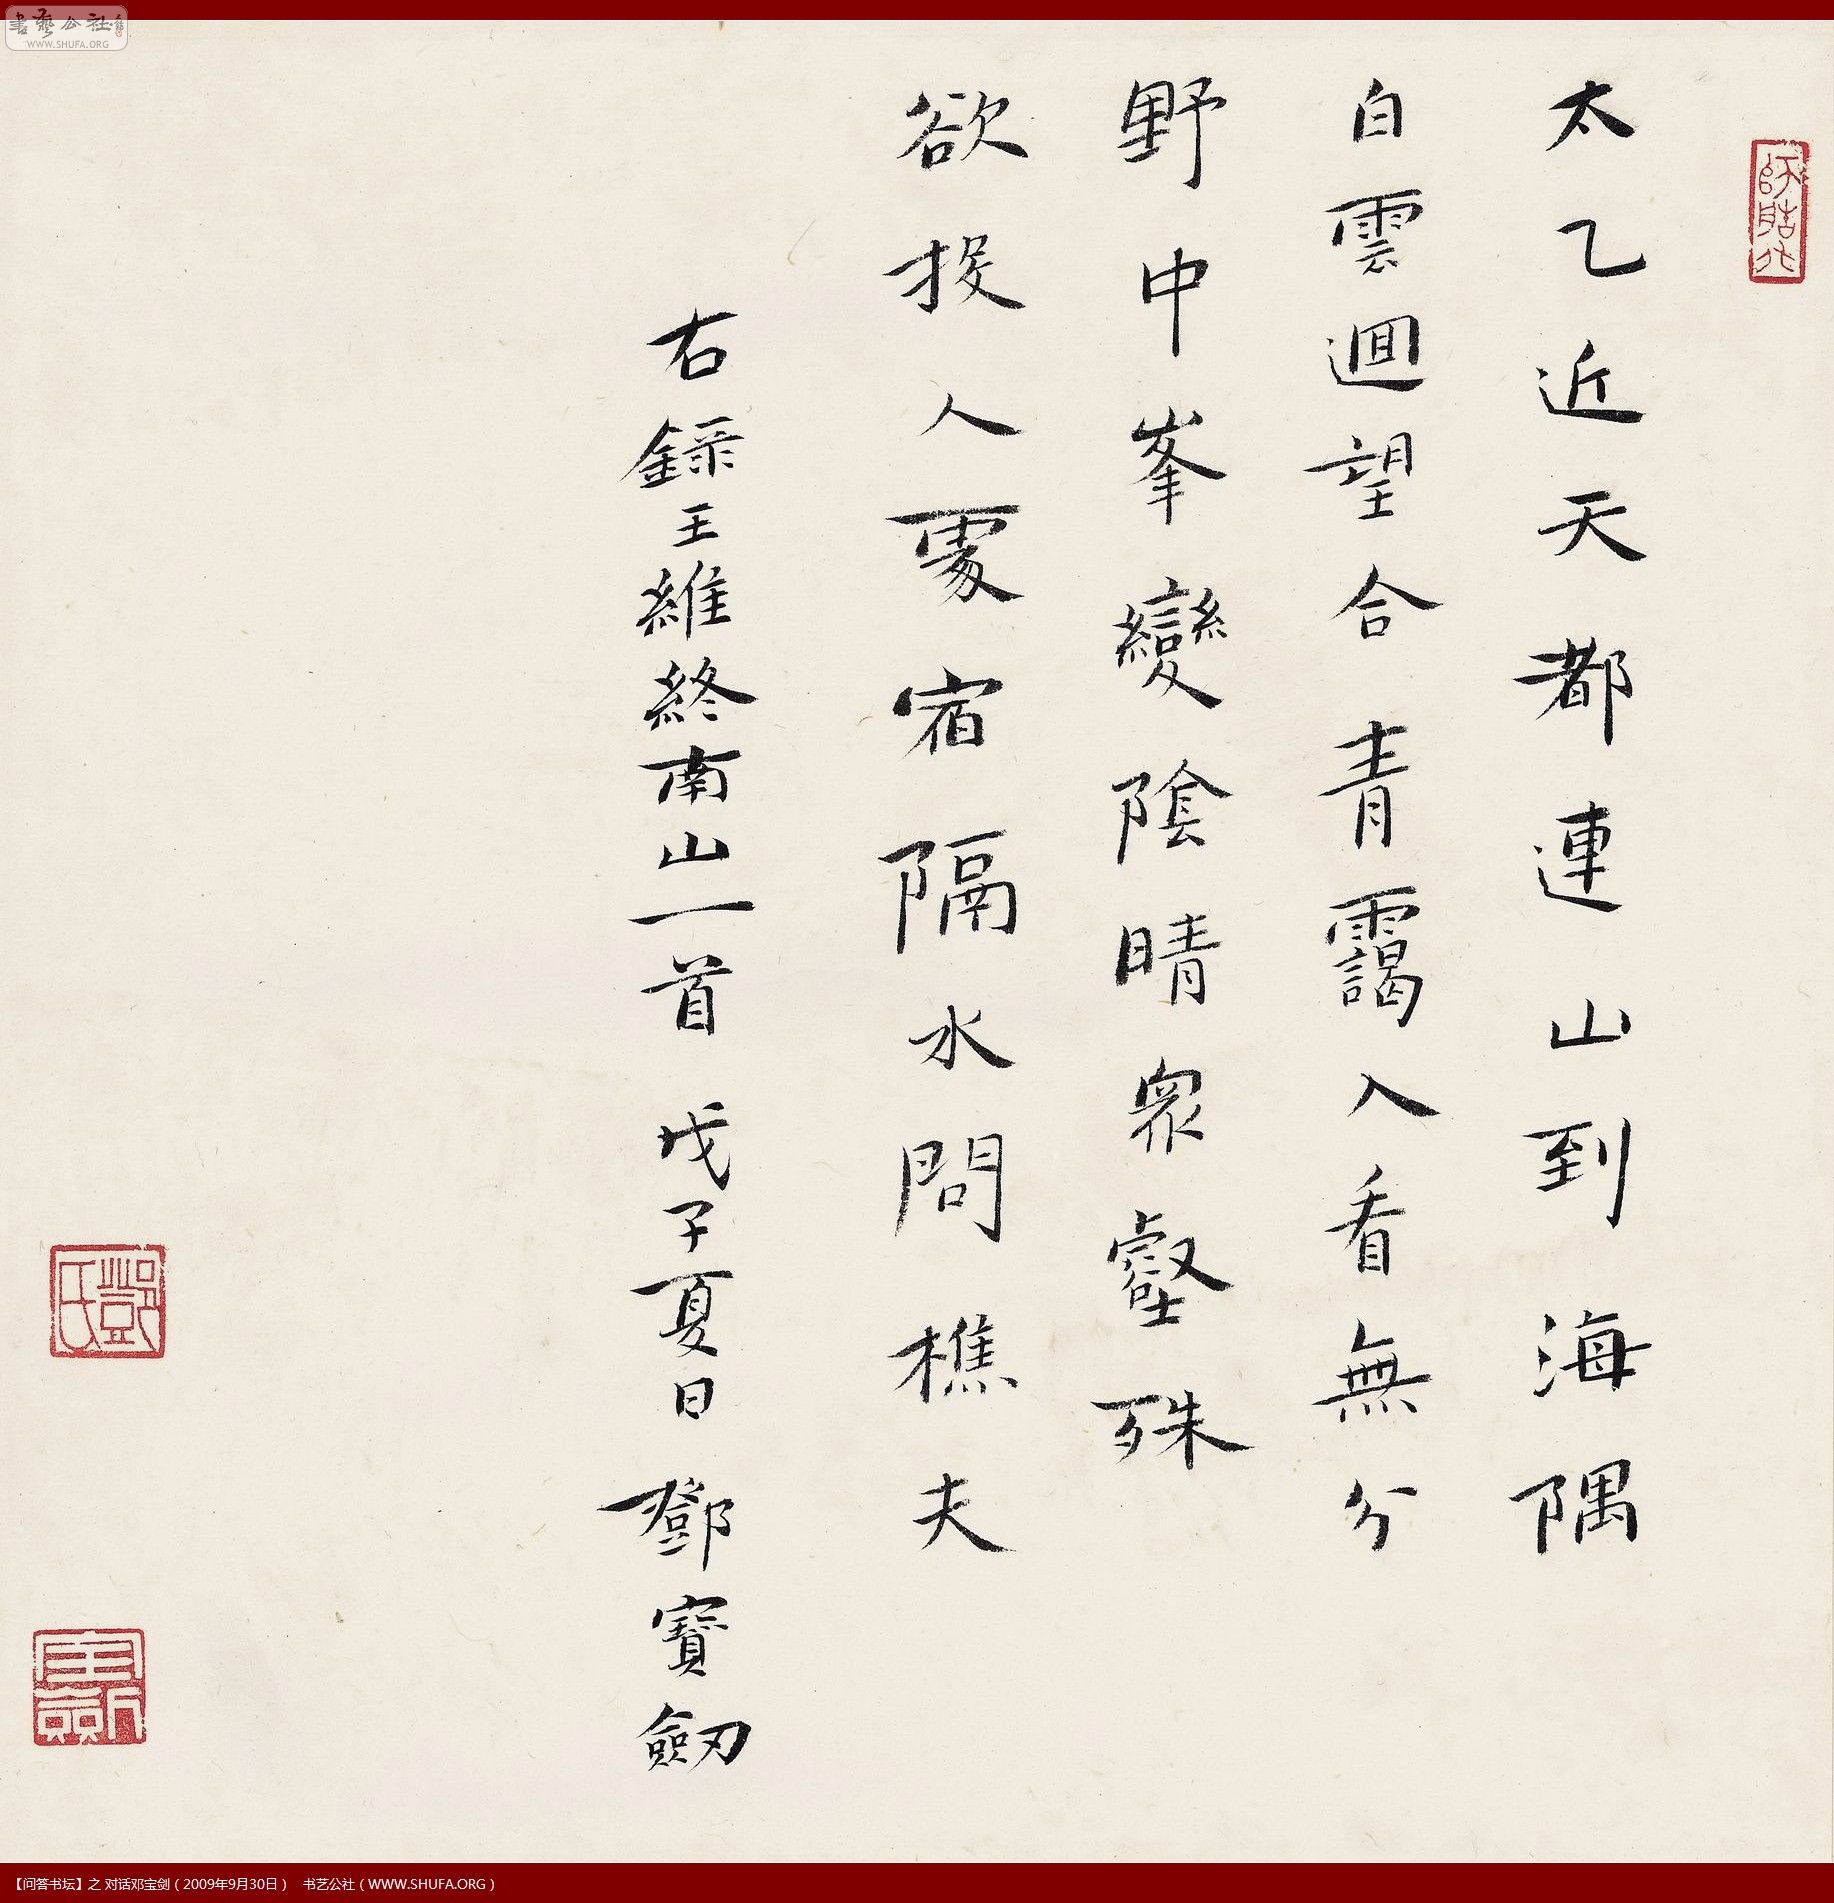 太乙近天都連山到海隅
白雲迴望合青靄入看無分
野中峯變陰晴眾壑殊
欲投人處宿隔水問樵夫
右錄王維終南山一首 戊子夏日 鄧寶劒
鄧氏
寶劍
書藝公社
WWW.SHUFA.ORG
【问答书坛】之 对话邓宝剑（2009年9月30日） 书艺公社（WWW.SHUFA.ORG）